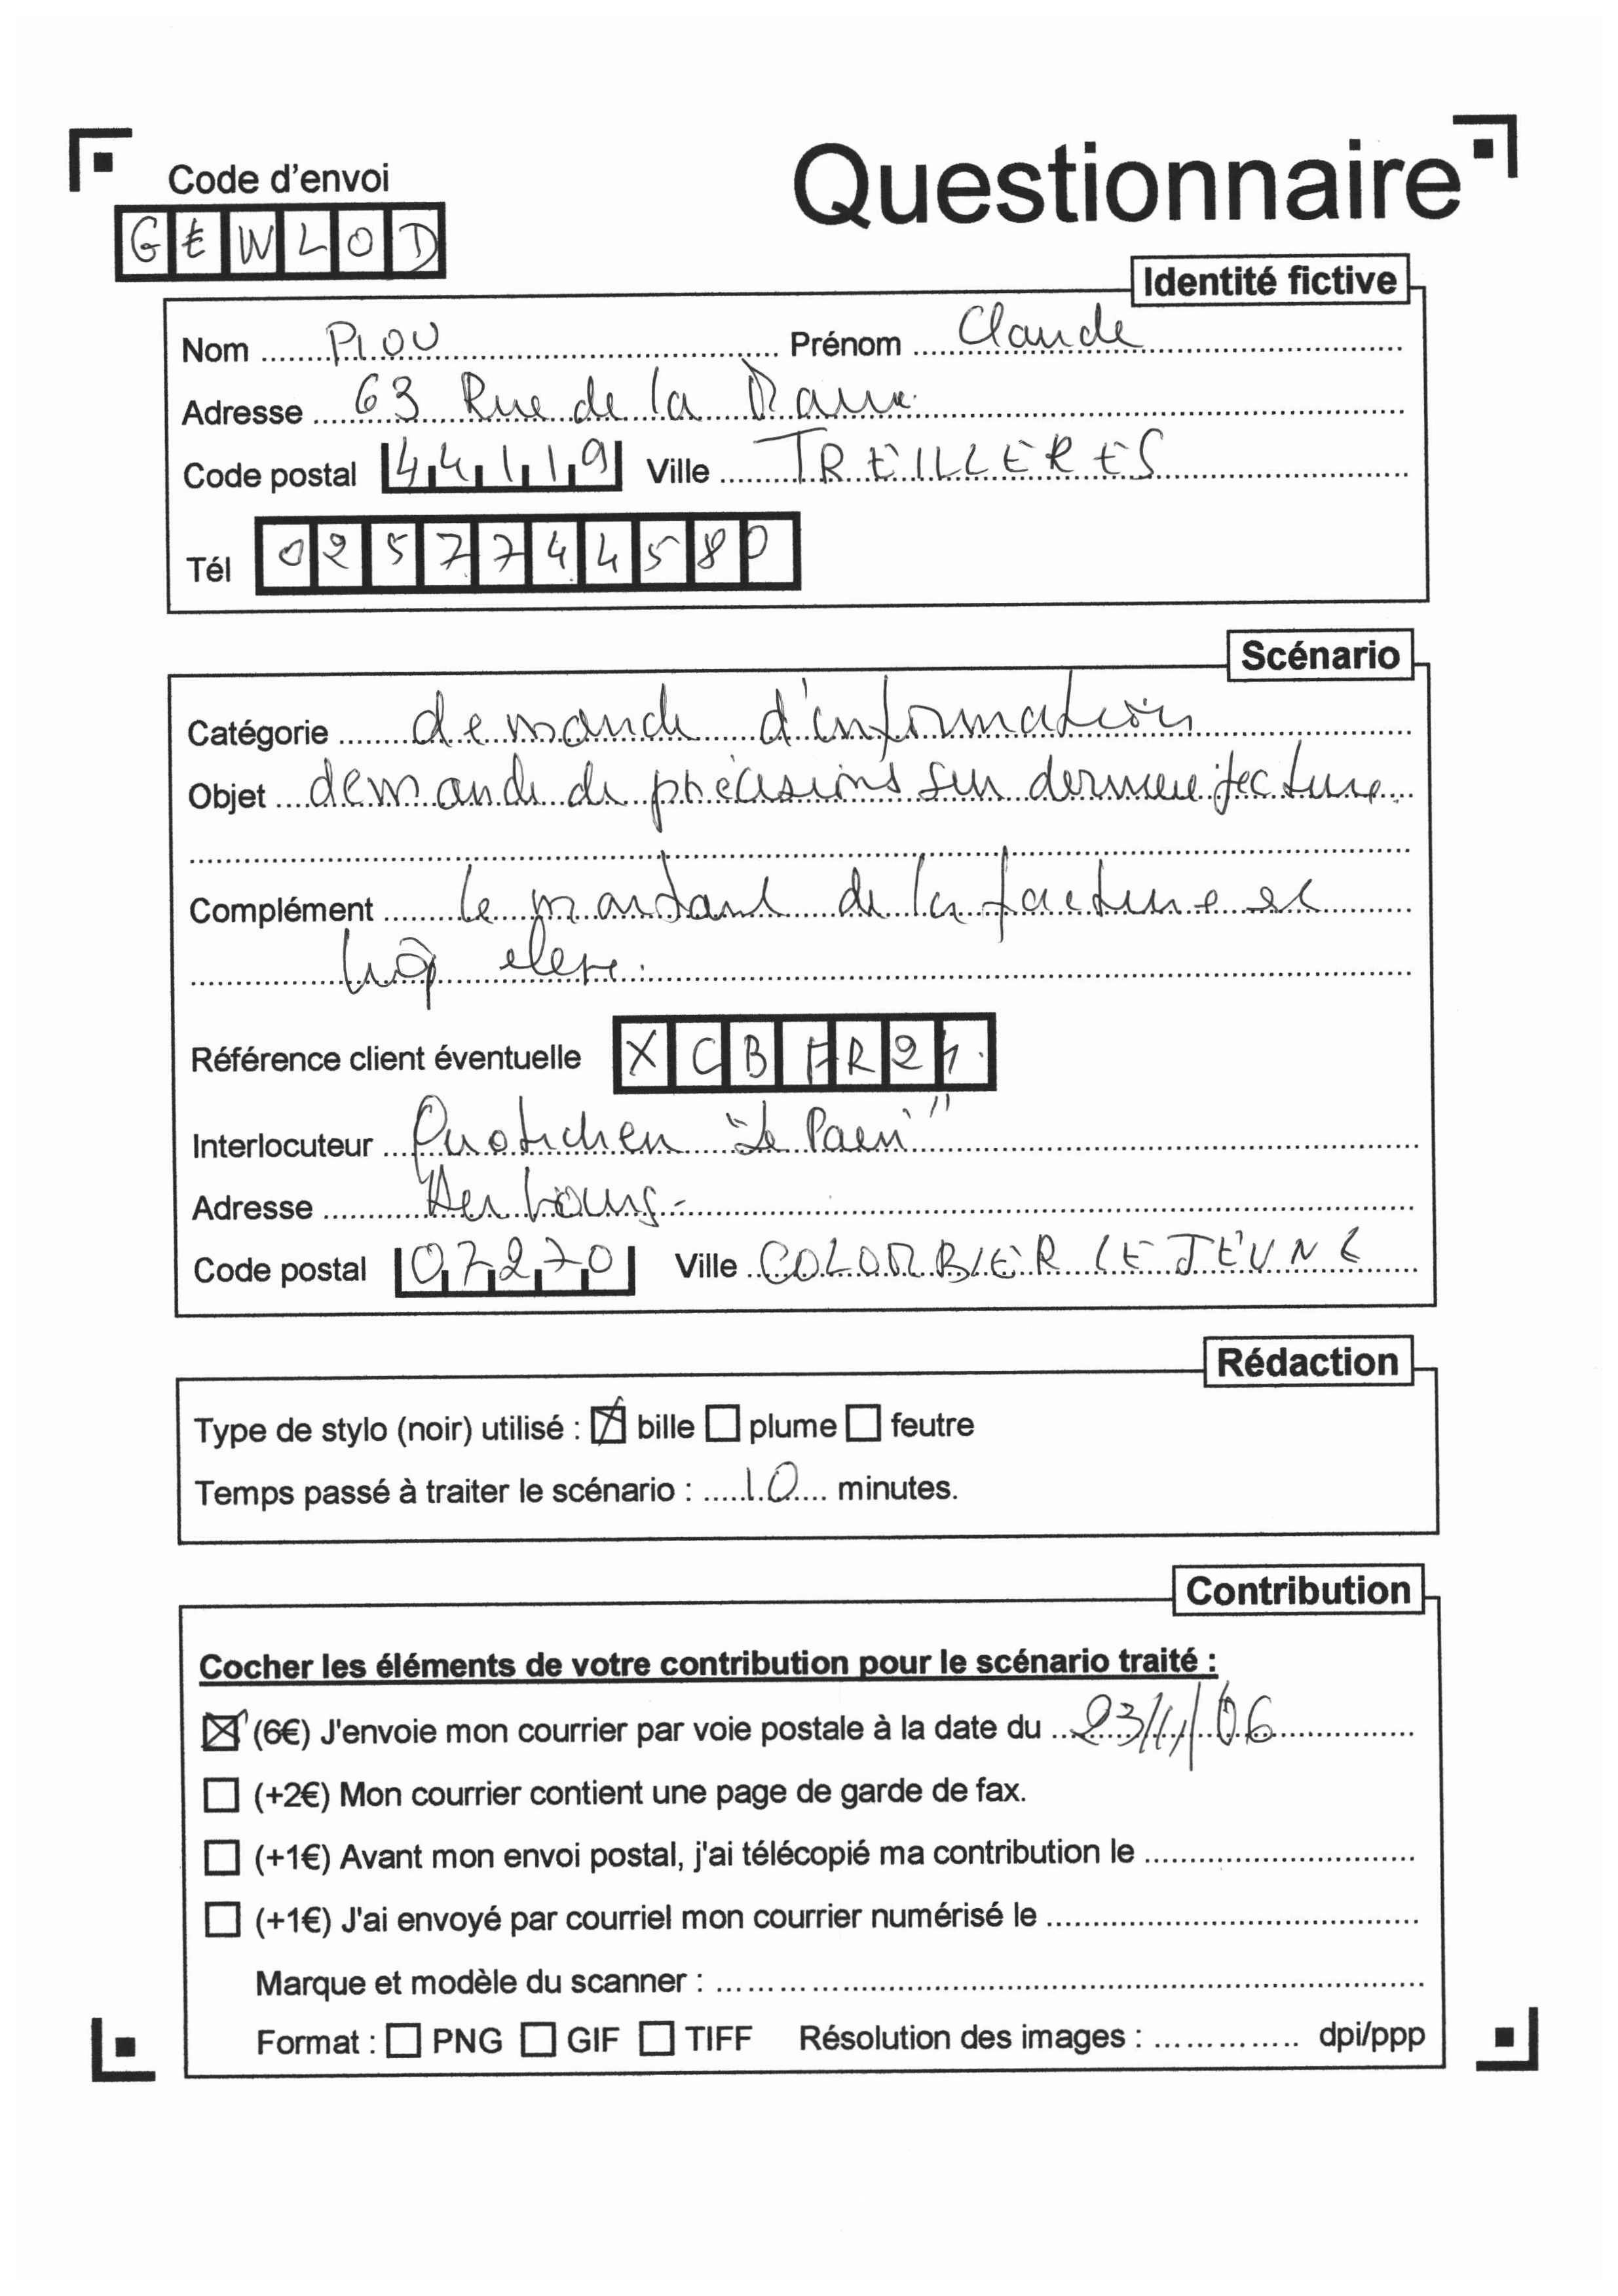 Code d'envoi
Questionnaire
GEWLOD
Identité fictive
Nom PIOU Prénom Claude
Adresse 63 Rue de la
Code postal 44119 Ville TREILLERES
Tél 0257744580
Scénario
Catégorie demande d'information
Objet demande de précisions sur derniere facture
Complément Le montant de la facture est
trop eleve.
Référence client éventuelle XCB R21
Interlocuteur Quotidien "Le Pari"
Adresse
Code postal 07270 Ville COLOMBIER LE JEUNE
Rédaction
Type de stylo (noir) utilisé : bille plume feutre
Temps passé à traiter le scénario : 10 minutes.
Contribution
Cocher les éléments de votre contribution pour le scénario traité :
(6€) J'envoie mon courrier par voie postale à la date du 23/1/06
(+2€) Mon courrier contient une page de garde de fax.
(+1€) Avant mon envoi postal, j'ai télécopié ma contribution le
(+1€) J'ai envoyé par courriel mon courrier numérisé le
Marque et modèle du scanner :
Format : PNG GIF TIFF Résolution des images : dpi/ppp